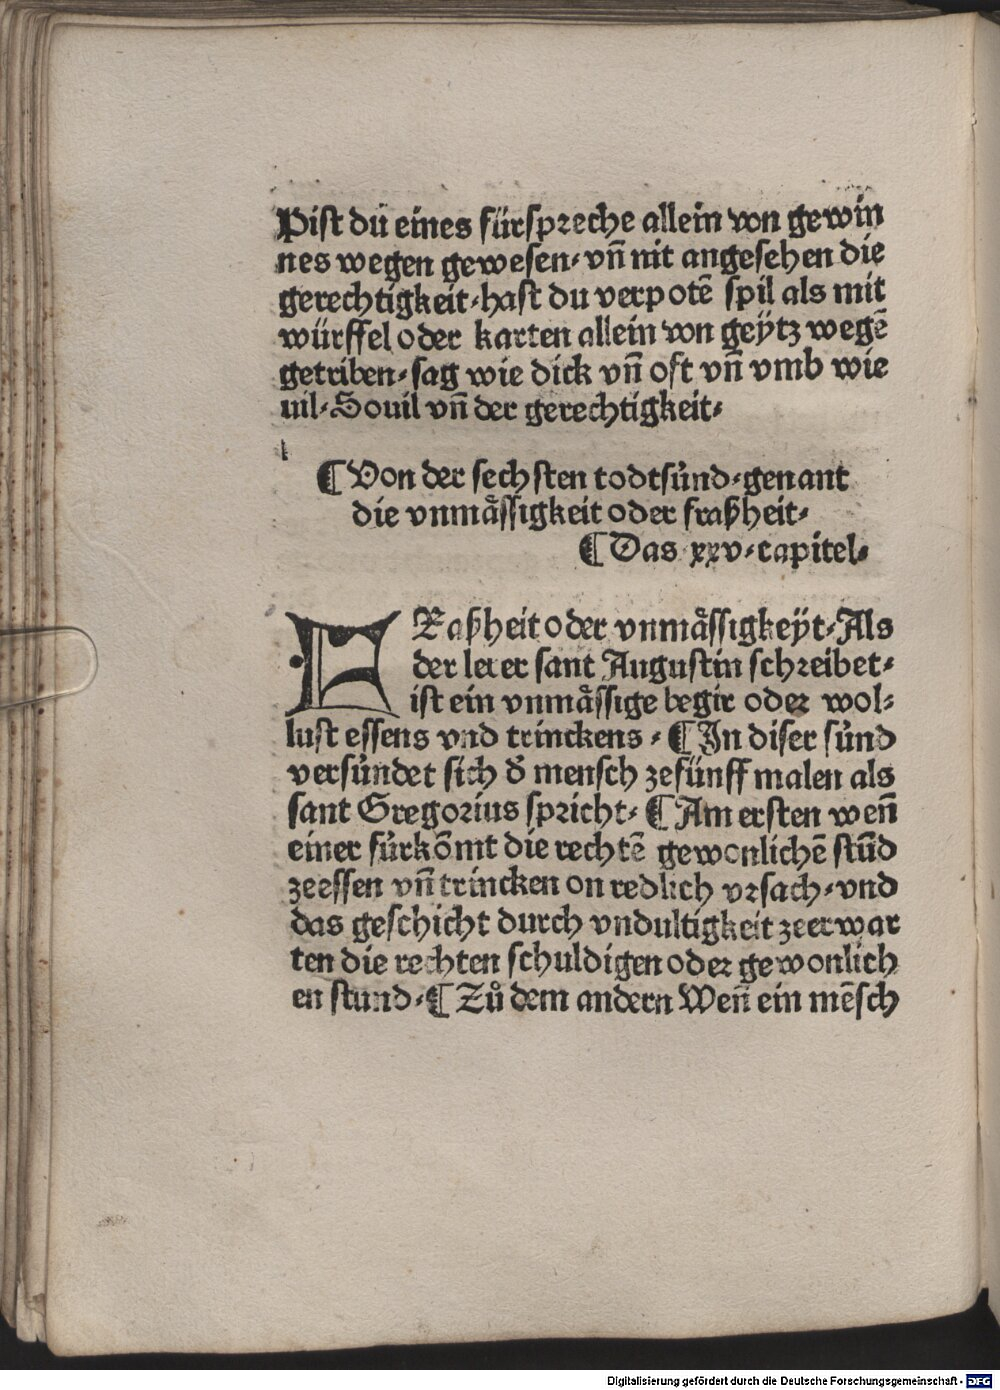 Pist du eines fürspreche allein von gewin
nes wegen gewesen· vn̄ nit angesehen die
gerechtigkeit· hast du verpotē spil als mit
würffel oder karten allein von geÿtz wegē
getriben· sag wie dick vn̄ oft vn̄ vmb wie
uil· Souil vn̄ der gerechtigkeit·
¶ Von der sechsten todtsünd· genant
die vnmåssigkeit oder fraßheit·
¶ Das xxv· capitel·
FRaßheit oder vnmåssigkeÿt· Als
der lerer sant Augustin schreibet·
ist ein vnmåssige begir oder wol⸗
lust essens vnd trinckens· ¶ In diser sünd
versündet sich d̄ mensch zefünff malen als
sant Gregorius spricht· ¶ Am ersten wen̄
einer fürkōmt die rechtē gewonlichē stūd
zeessen vn̄ trincken on redlich vrsach· vnd
das geschicht durch vndultigkeit zeerwar
ten die rechten schuldigen oder gewonlich
en stund· ¶ Zů dem andern Wen̄ ein mēsch
Digitalisierung gefördert durch die Deutsche Forschungsgemeinschaft - DFG